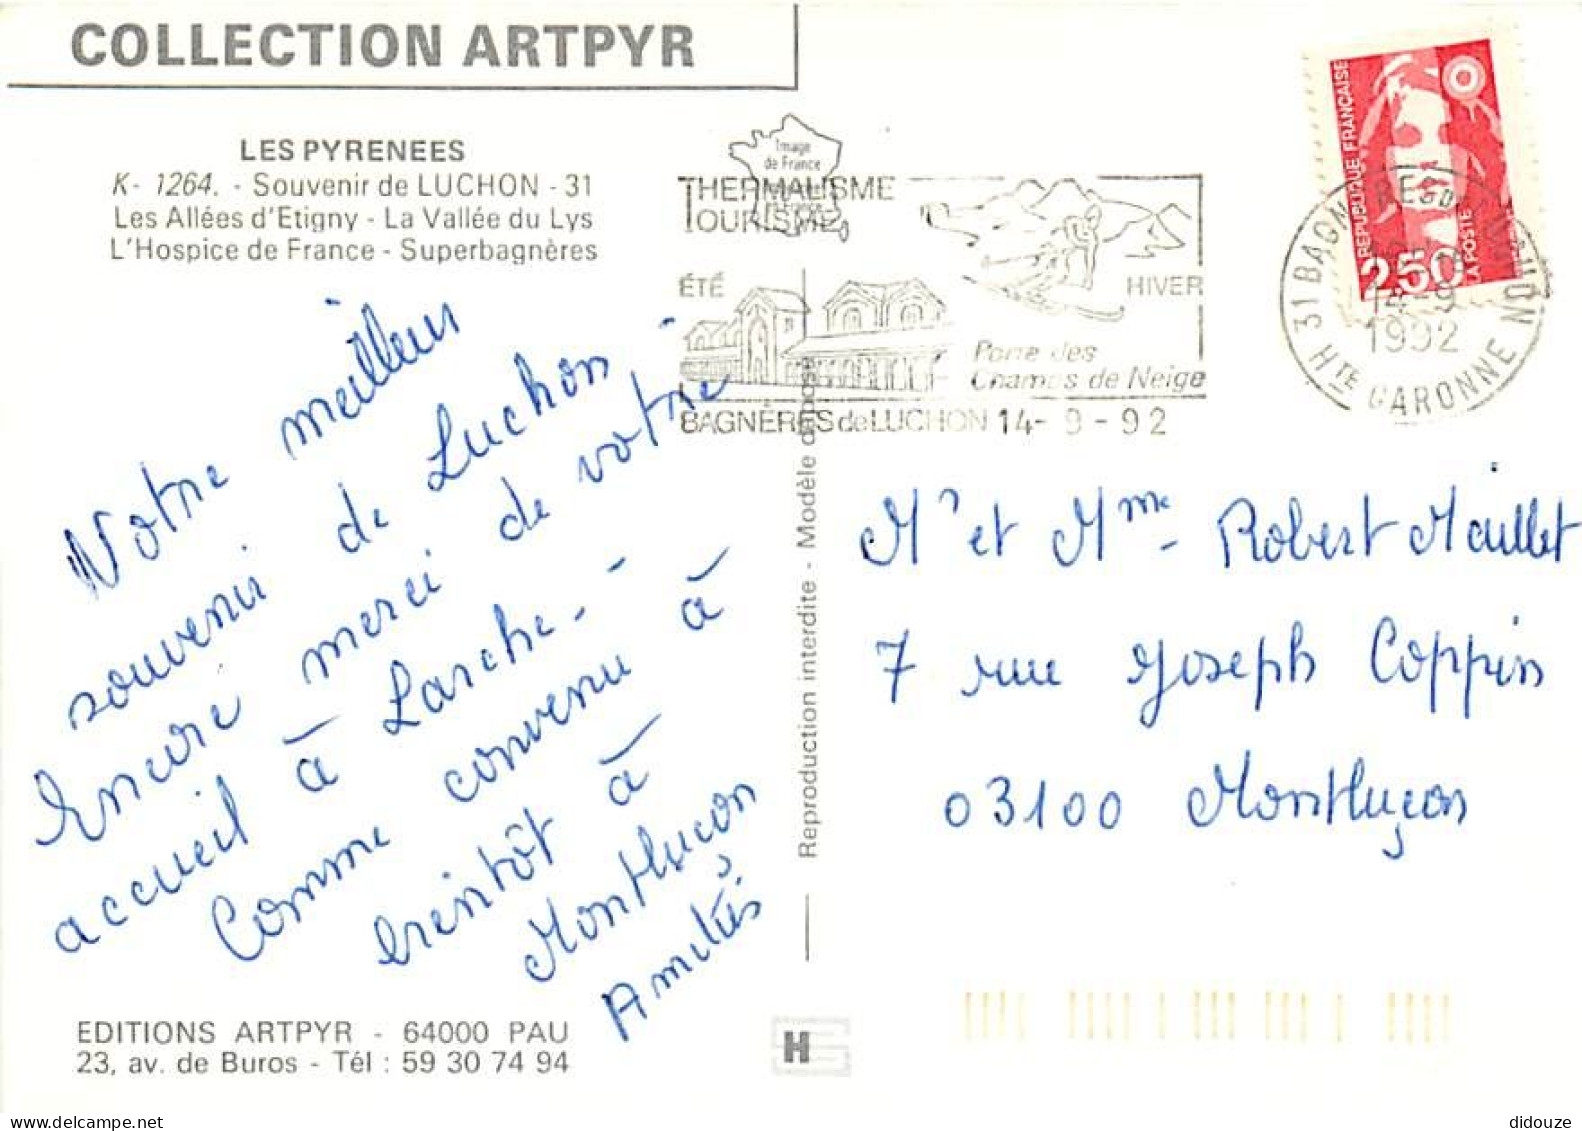 COLLECTION ARTPYR
LES PYRENEES
K- 1264. - Souvenir de LUCHON - 31
Les Allées d'Etigny - La Vallée du Lys
L'Hospice de France - Superbagnères
Image
de France
THERMALISME
TOURISME
ÉTÉ
HIVER
Porte des
Champs de Neige
BAGNÈRES de LUCHON 14- 9 - 92
RÉPUBLIQUE FRANÇAISE
2,50
LA POSTE
14-9
1992
31 BAGN
HTE GARONNE
Votre meilleur
souvenir de Luchon -
Encore merci de votre
accueil à Larche - -
Comme convenu à
bientôt à
Montluçon
Amitiés
Reproduction interdite - Modèle déposé
Mr et Mme Robert Maillet
7 rue Joseph Coppin
03100 Montluçon
EDITIONS ARTPYR - 64000 PAU
23, av. de Buros - Tél : 59 30 74 94
didouze